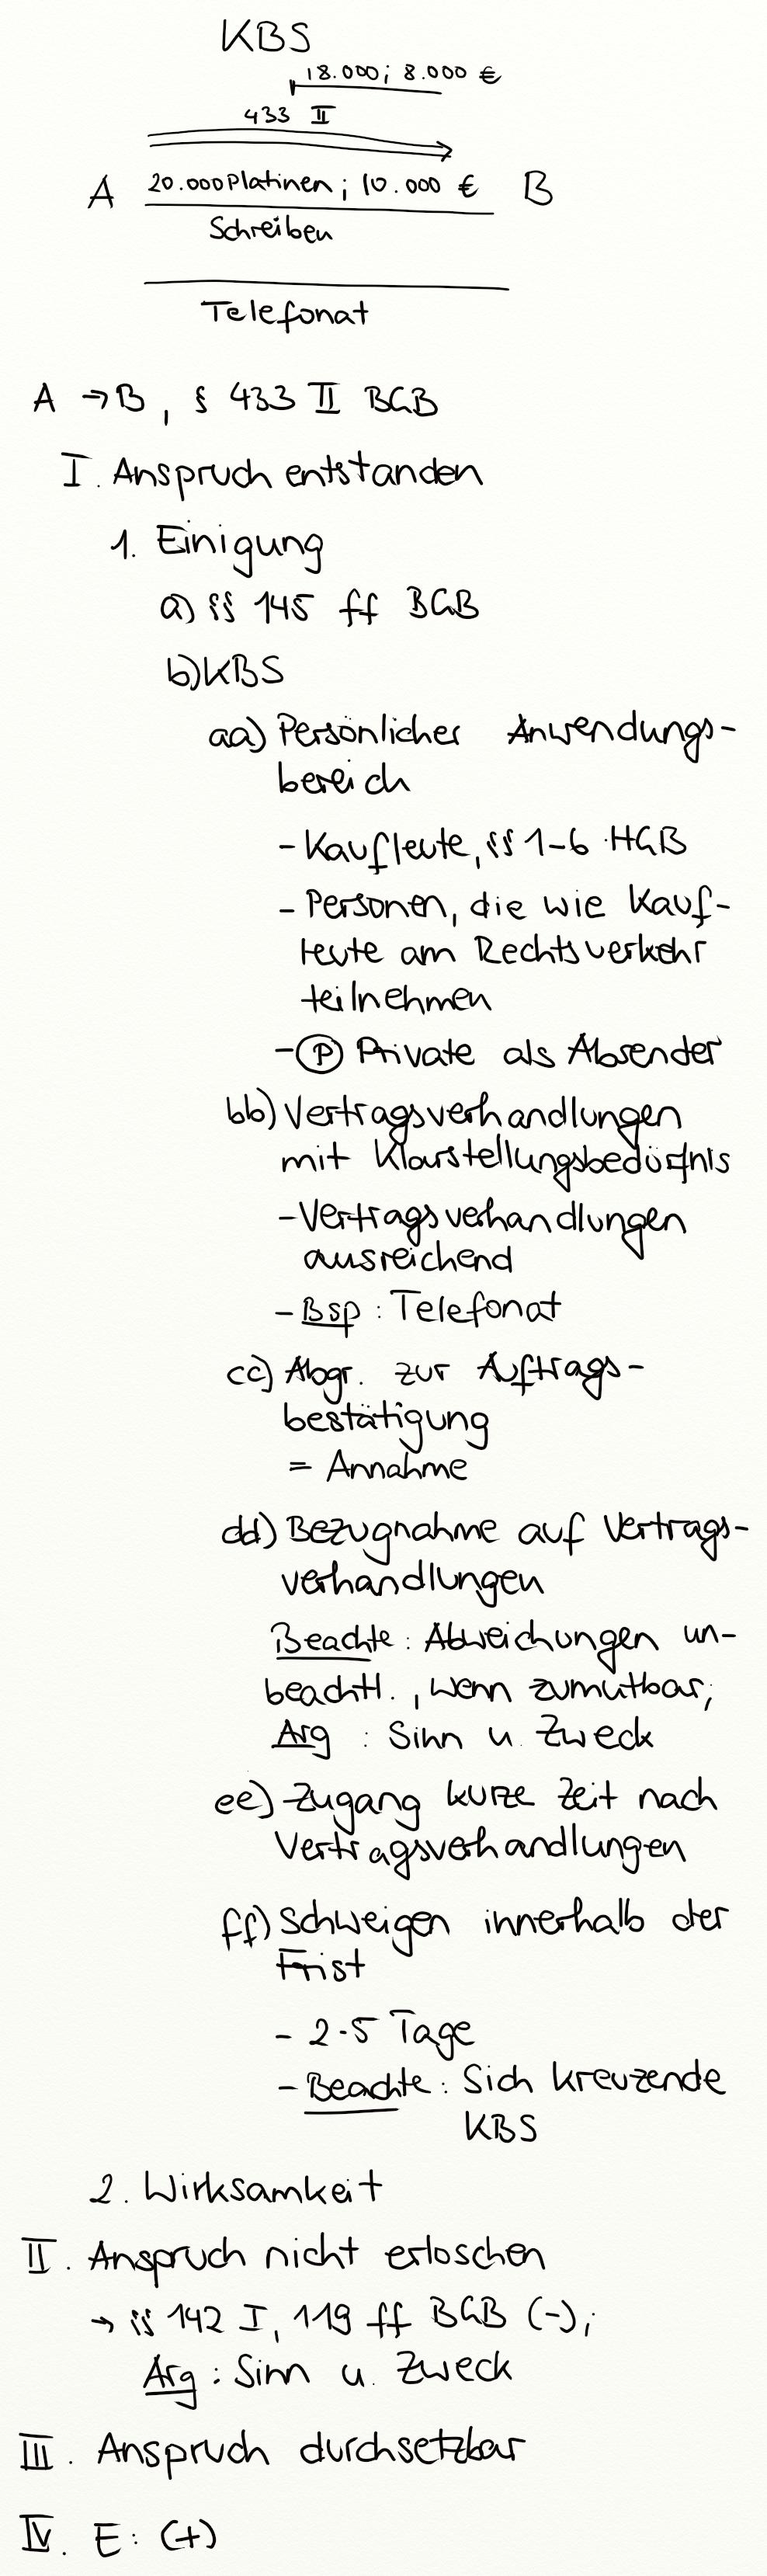 KBS
18.000; 8.000 €
433 II
A 20.000 Platinen; 10.000 € B
Schreiben
Telefonat
A → B, § 433 II BGB
I. Anspruch entstanden
1. Einigung
a) §§ 145 ff BGB
b) KBS
aa) Persönlicher Anwendungs-
bereich
- Kaufleute, §§ 1-6 HGB
- Personen, die wie Kauf-
leute am Rechtsverkehr
teilnehmen
- (P) Private als Absender
bb) Vertragsverhandlungen
mit Klarstellungsbedürfnis
- Vertragsverhandlungen
ausreichend
- Bsp: Telefonat
cc) Abgr. zur Auftrags-
bestätigung
= Annahme
dd) Bezugnahme auf Vertrags-
verhandlungen
Beachte: Abweichungen un-
beachtl., wenn zumutbar;
Arg: Sinn u. Zweck
ee) Zugang kurze Zeit nach
Vertragsverhandlungen
ff) Schweigen innerhalb der
Frist
- 2-5 Tage
- Beachte: Sich kreuzende
KBS
2. Wirksamkeit
II. Anspruch nicht erloschen
→ §§ 142 I, 119 ff BGB (-);
Arg: Sinn u. Zweck
III. Anspruch durchsetzbar
IV. E: (+)